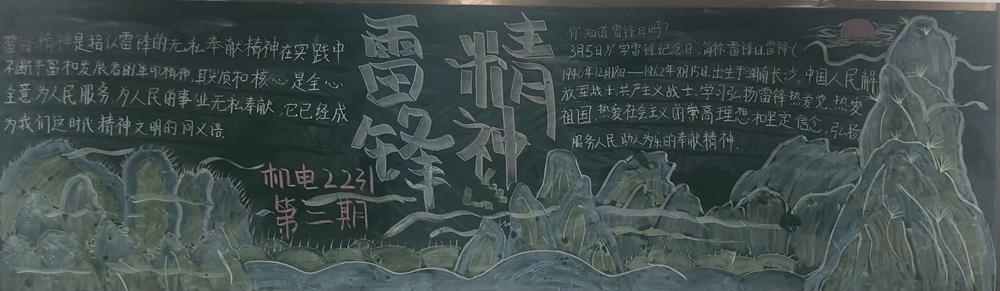 雷锋精神是指以雷锋的无私奉献精神在实践中
不断丰富和发展着的革命精神,其实质和核心是全心
全意为人民服务,为人民的事业无私奉献,它已经成
为我们这时代精神文明的同义语。
雷锋
精神
机电2231
第三期
你知道雷锋日吗?
3月5日为学雷锋纪念日,简称雷锋日雷锋(
1940年12月18日—1962年8月15日,出生于湖南长沙,中国人民解
放军战士,共产主义战士,学习弘扬雷锋热爱党、热爱
祖国、热爱社会主义的崇高理想和坚定信念,弘扬
服务人民助人为乐的奉献精神.